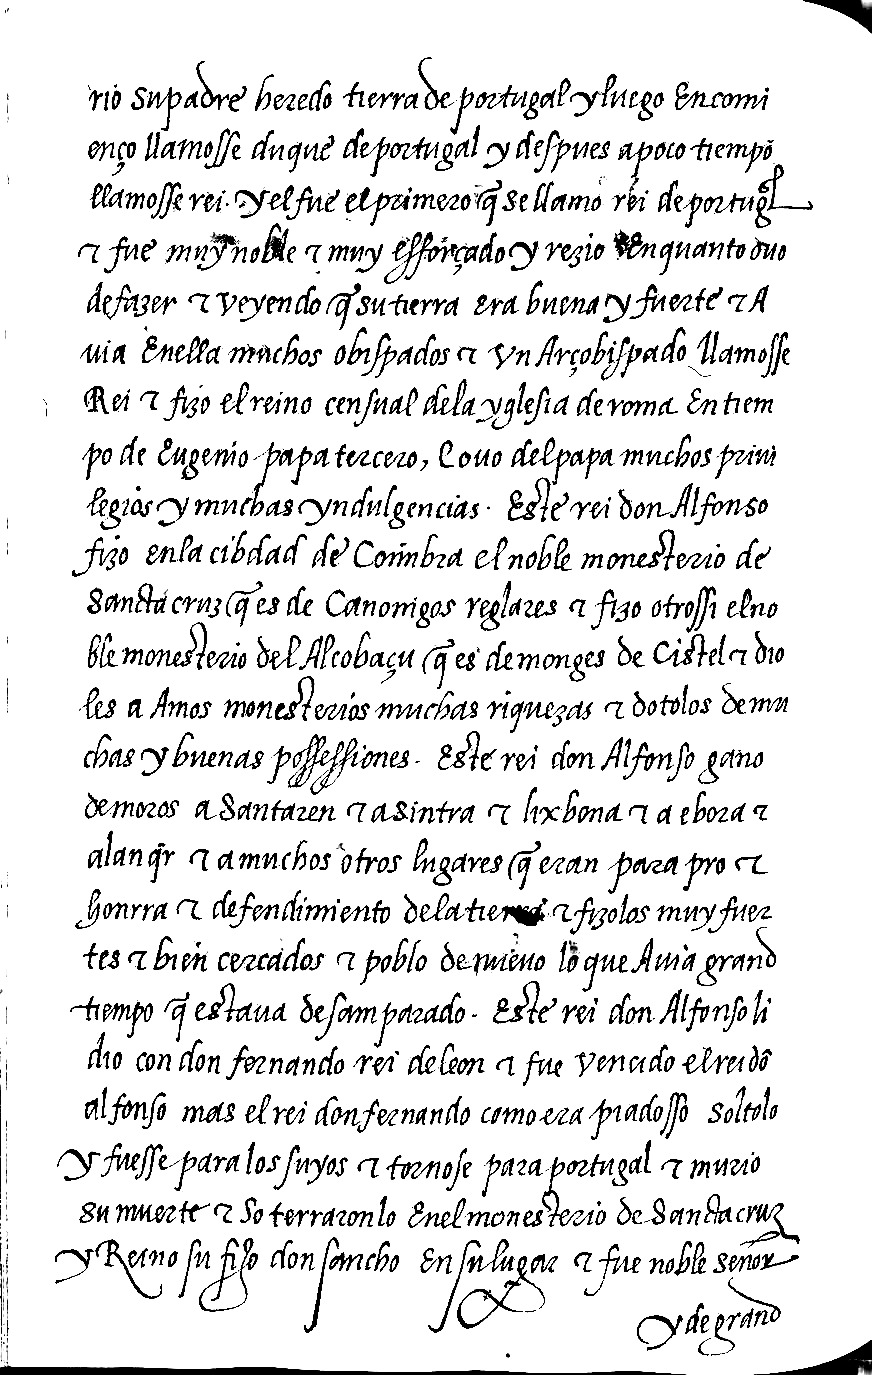 rio su padre heredo tierra de portugal y luego En comi
enço llamosse duque de portugal y despues a poco tiempō
llamosse rei. y el fue el primero q̃ se llamo rei de portugl
τ fue muy noble τ muy esforçado y rezio En quanto ouo
de fazer τ veyendo q̃ su tierra era buena y fuerte τ A
via Enella muchos obispados τ vn Arçobispado llamosse
Rei τ fizo el reino censual dela yglesia de roma En tiem
po de Eugenio papa tercero, E ouo del papa muchos privi
legios y muchas yndulgencias. Este rei don Alfonso
fizo enla cibdad de Coimbra el noble monesterio de
Sancta cruz q̃ es de Canonigos reglares τ fizo otrossi el no
ble monesterio del Alcobaçu q̃ es de monges de Cistel τ dio
les a Amos monesterios muchas riquezas τ dotolos de mu
chas y buenas possessiones. Este rei don Alfonso gano
de moros a Santaren τ a Sintra τ lixbona τ a ebora τ
alanq̃r τ a muchos otros lugares q̃ eran para pro τ
honrra τ defendimiento dela tierra τ fizolos muy fuer
tes τ bien cercados τ poblo de nuevo lo que Avia grand
tiempo q̃ estaua desamparado. Este rei don Alfonso li
dio con don fernando rei de leon τ fue vencido el rei dō
alfonso mas el rei don fernando como era piadosso soltolo
y fuesse para los suyos τ tornose para portugal τ murio
su muerte τ so terraronlo Enel monesterio de Sancta cruz
y Reino su fijo don sancho en su lugar τ fue noble señor
y de grand